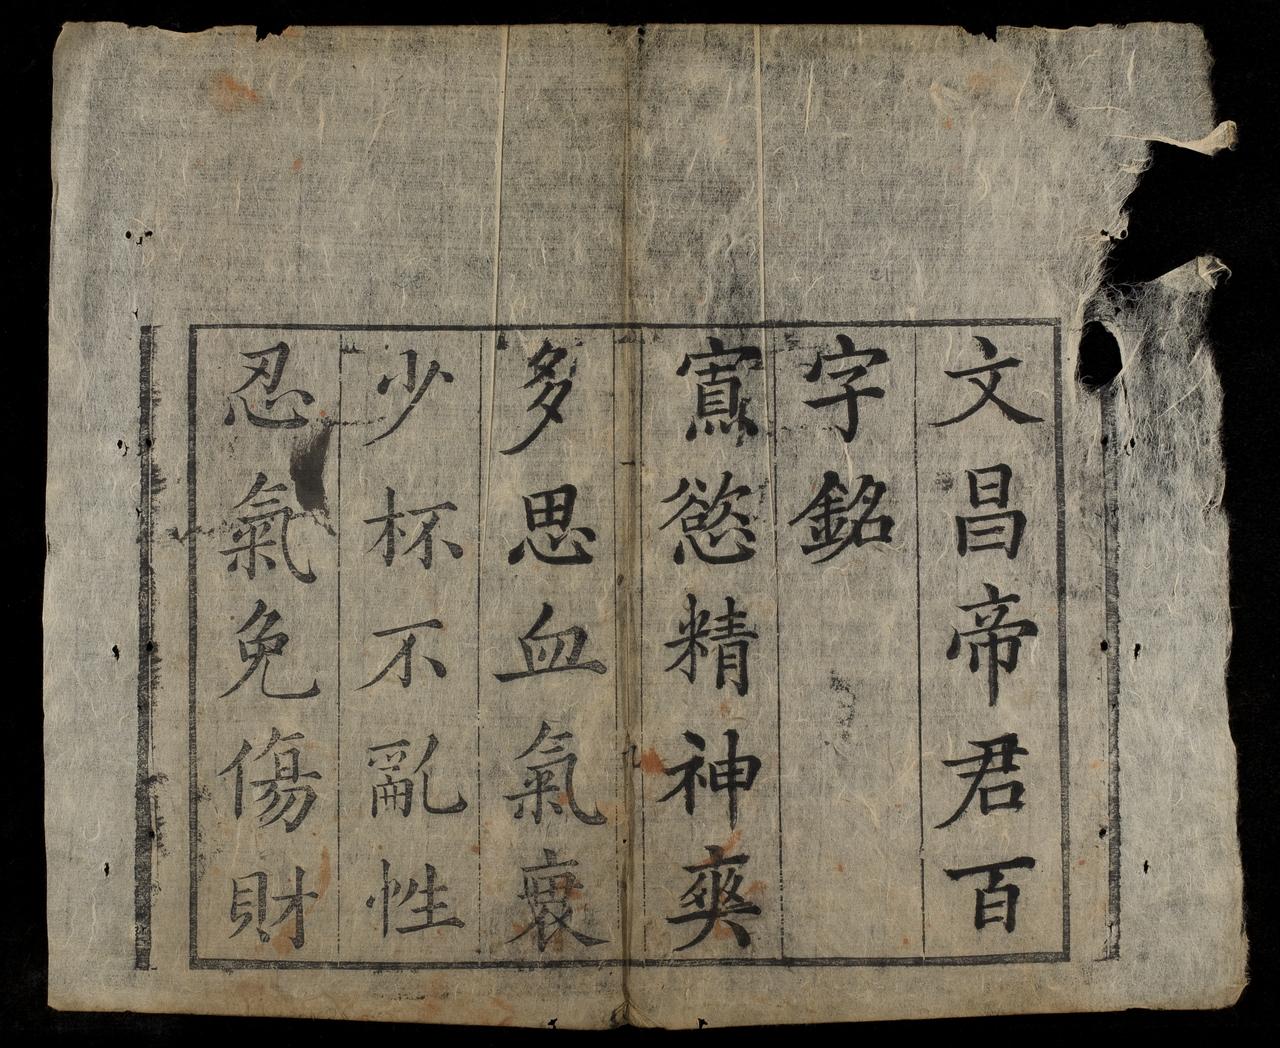 文昌帝君百
字銘
寡慾精神爽
多思血氣衰
少杯不亂性
忍氣免傷財